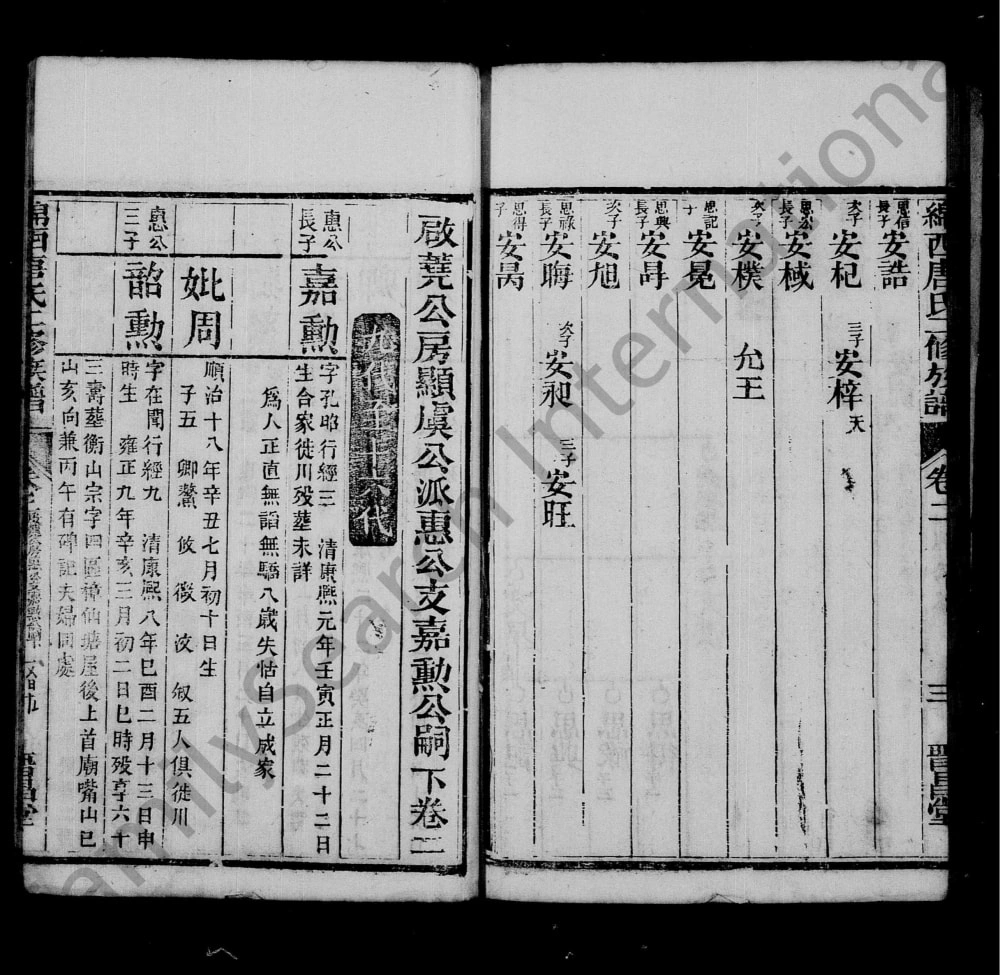 綿西唐氏修族譜 卷二 三 晉昌堂
思信長子 安誥
次子 安杞 三子 安梓 夭
思宏長子 安棫
次子 安樸 允王
思記子 安冕
思興長子 安㝵
次子 安旭
思祿長子 安晦 次子 安昶 三子 安旺
思得子 安昺
啟蕘公房顯虞公派惠公支嘉勳公嗣下卷二
惠公長子 嘉勳 字孔昭行經三 清康熙元年壬寅正月二十二日
生合家徙川歿塟未詳
爲人正直無謟無驕八歲失怙自立成家
妣周 順治十八年辛丑七月初十日生
子五 卿鰲 攸 徵 汝 叙五人俱徙川
惠公三子 韶勳 字在聞行經九 清康熙八年巳酉二月十三日申
時生 雍正九年辛亥三月初二日巳時歿享六十
三壽塟衡山宗字四區樟仙塘屋後上首廟嘴山巳
山亥向兼丙午有碑記夫婦同處
FamilySearch International